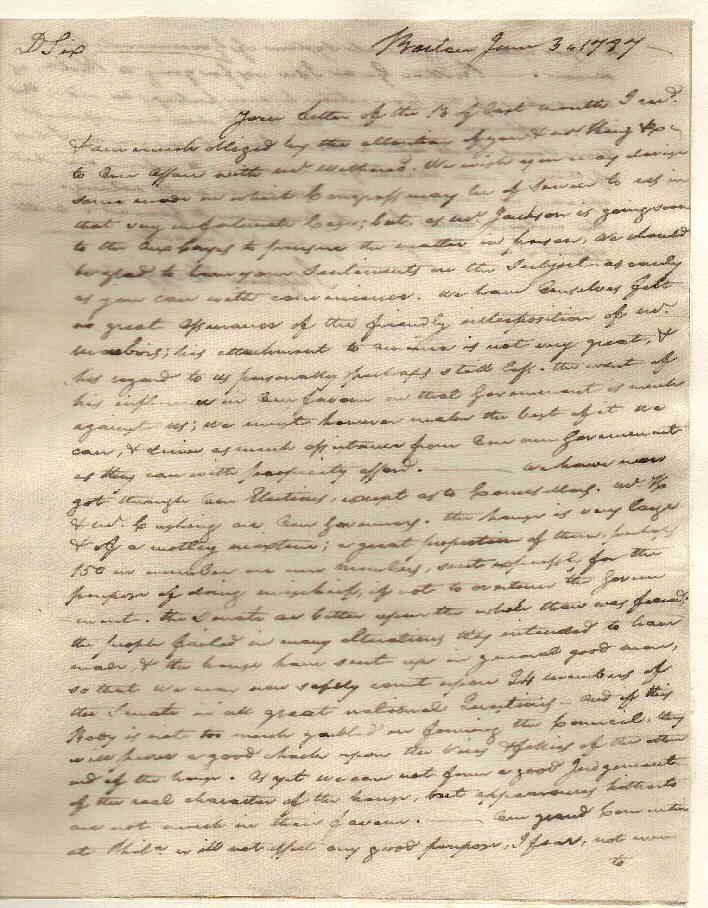 D Sir Boston June 3d 1787
Your Letter of the 13 of last month I recd.
& am much obliged by the attention of you & Mr King
to our affair with Mr Wethered. We wish you may devise
some mode in which Congress may be of service to us in
that very unfortunate Cage; but, as Mr Jackson is going soon
to the to pursue the matter in person, we should
be glad to know your Sentiments on the Subject as early
as you can with convenience. We have ourselves felt
no great assurance of the friendly interposition of Mr.
his attachment to america is not very great, &
his regard to us personally perhaps still less. the want of
his influence in our favour in that Government is much
against us; we must however make the best of it we
can, & derive as much assistance from our own Government
as they can with propriety afford. — We have now
got through our Elections, except as to Counsellors. Mr H
& Mr. Cushing are our Governors. the house is very large
& of a motley mixture; a great proportion of them, perhaps
150 in number are new members, sent expressly for the
purpose of doing mischief, if not to overturn the Govern
ment. the Senate are better upon the whole than was feared;
the people failed in many alterations they intended to have
made, & the house have sent up in general good men,
so that we may now safely count upon 24 members of
the Senate in all great national Questions — and if this
Body is not too much in forming the Council, they
will prove a good check upon the Vices & follies of the other
end of the house. As yet we can not form a good Judgement
of the real character of the house, but appearances hitherto
are not much in their favour. — Our grand Convention
at Phila. will not effect any good purpose, I fear, not even
to